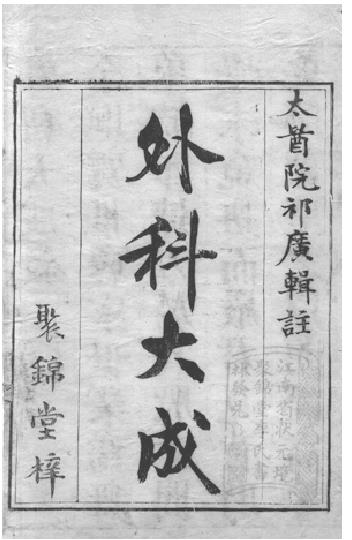 太醫院祁廣輯註
外科大成
聚錦堂梓
江南省狀元境
聚錦堂李氏書